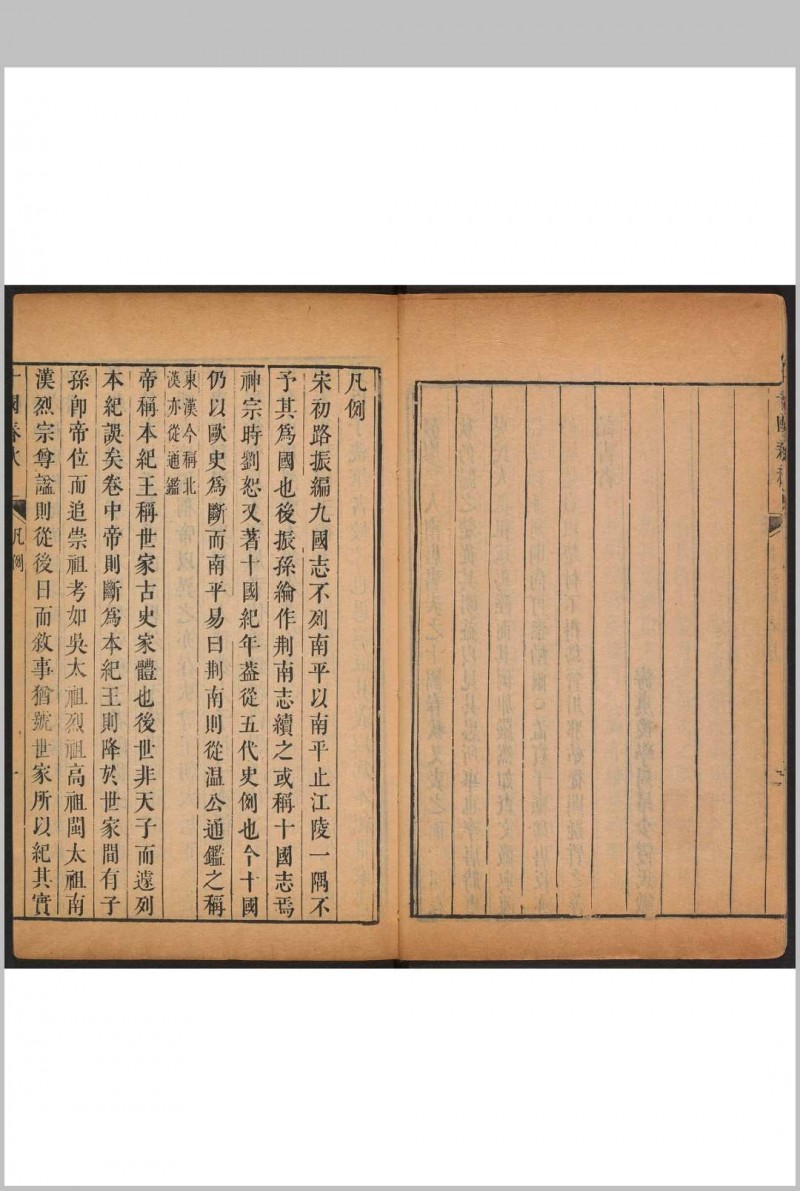 凡例
宋初路振編九國志不列南平以南平止江陵一隅不
予其爲國也後振孫綸作荆南志續之或稱十國志焉
神宗時劉恕又著十國紀年葢從五代史例也今十國
仍以歐史爲斷而南平易曰荆南則從温公通鑑之稱
東漢今稱北
漢亦從通鑑
帝稱本紀王稱世家古史家體也後世非天子而遽列
本紀誤矣卷中帝則斷爲本紀王則降於世家間有子
孫卽帝位而追崇祖考如吳太祖烈祖高祖閩太祖南
漢烈宗尊諡則從後日而敘事猶號世家所以紀其實
十國春秋
凡例
一